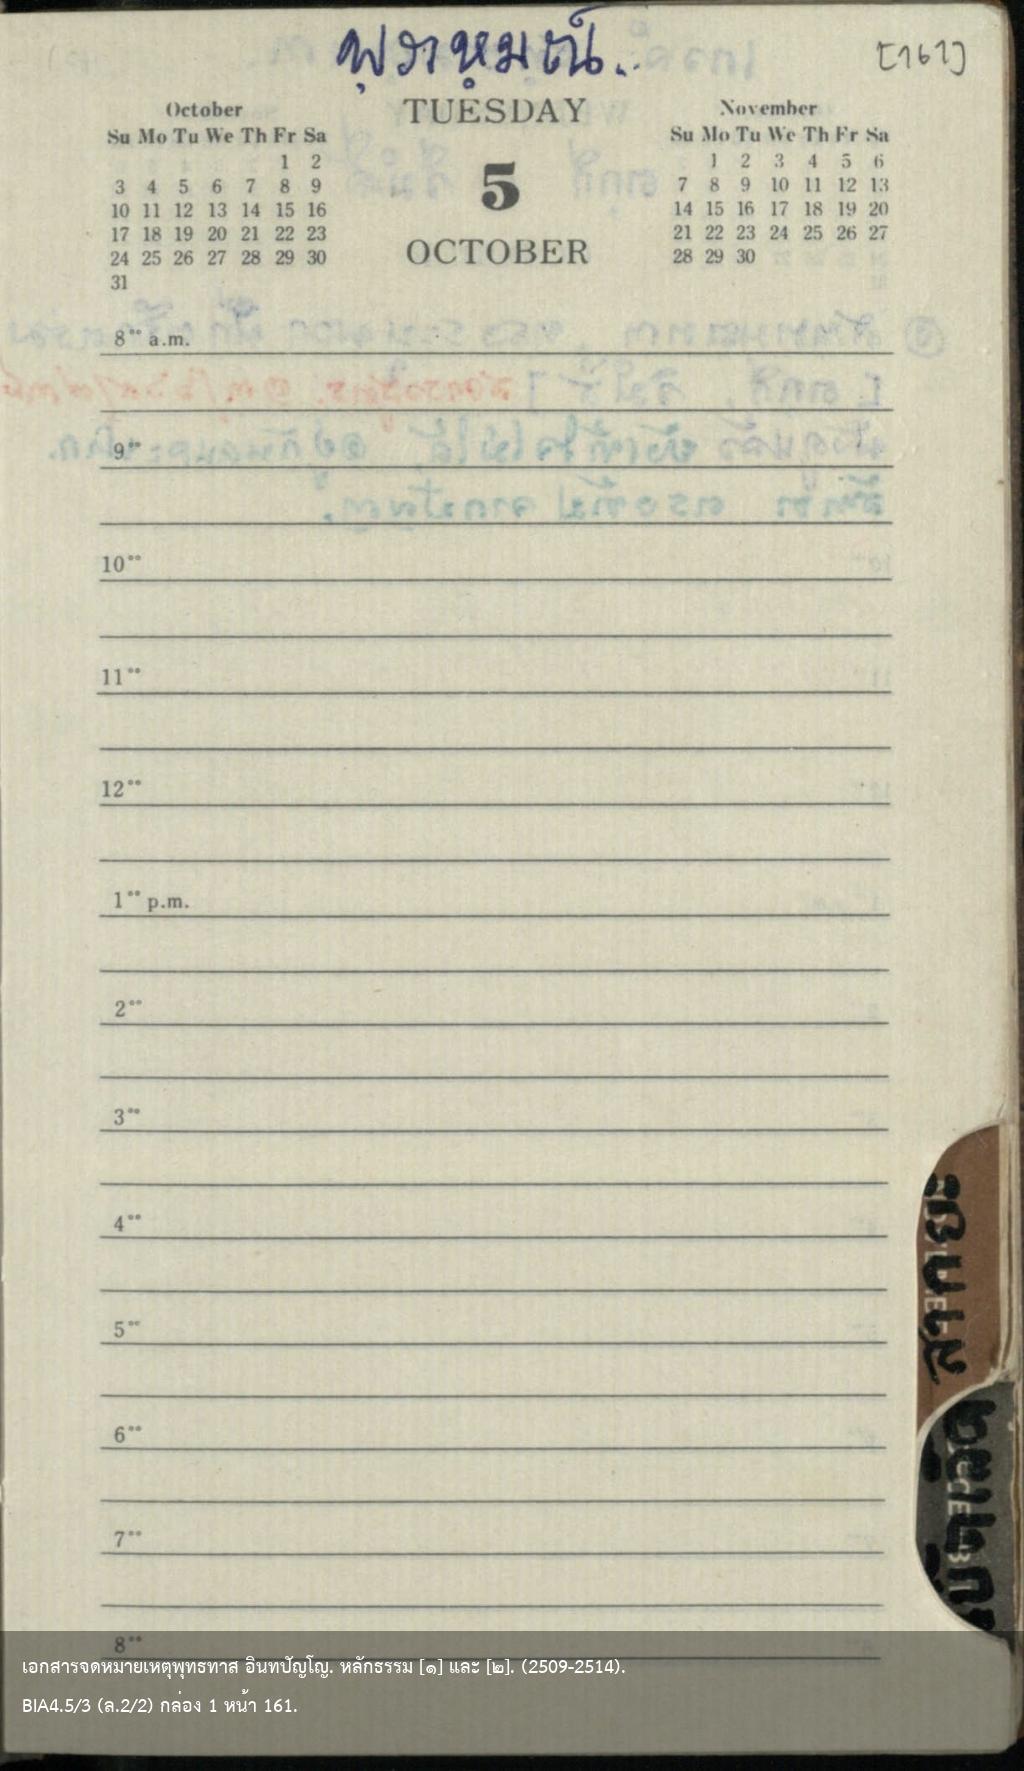 พฺราหฺมณ์..
[161]
October
Su Mo Tu We Th Fr Sa
1 2
3 4 5 6 7 8 9
10 11 12 13 14 15 16
17 18 19 20 21 22 23
24 25 26 27 28 29 30
31
TUESDAY
5
OCTOBER
November
Su Mo Tu We Th Fr Sa
1 2 3 4 5 6
7 8 9 10 11 12 13
14 15 16 17 18 19 20
21 22 23 24 25 26 27
28 29 30
8°° a.m.
9°°
10°°
11°°
12°°
1°° p.m.
2°°
3°°
4°°
5°°
6°°
7°°
8°°
สากยะ
เอกสารจดหมายเหตุพุทธทาส อินทปัญโญ. หลักธรรม [๑] และ [๒]. (2509-2514).
BIA4.5/3 (ล.2/2) กล่อง 1 หน้า 161.